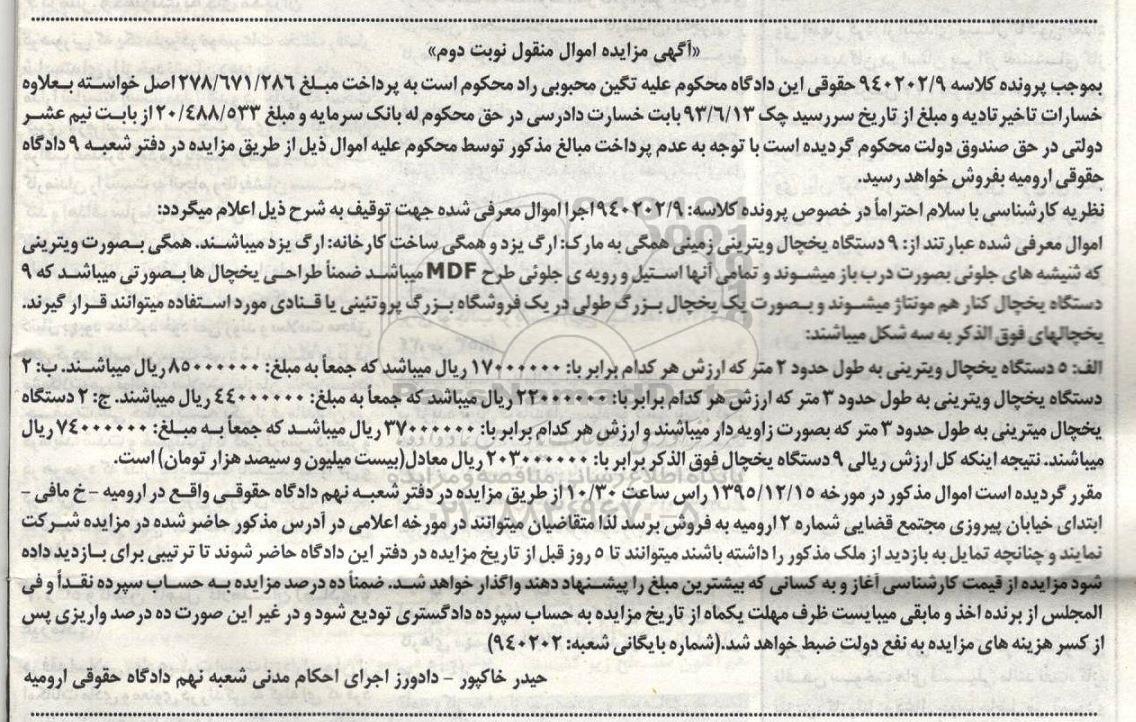 «آگهی مزایده اموال منقول نوبت دوم»
بموجب پرونده کلاسه ۹۴۰۲۰۲/۹ حقوقی این دادگاه محکوم علیه تگین محبوبی راد محکوم است به پرداخت مبلغ ۲۷۸/۶۷۱/۲۸۶ اصل خواسته بعلاوه
خسارات تاخیر تادیه و مبلغ از تاریخ سررسید چک ۹۳/۶/۱۳ بابت خسارت دادرسی در حق محکوم له بانک سرمایه و مبلغ ۲۰/۴۸۸/۵۳۳ از بابت نیم عشر
دولتی در حق صندوق دولت محکوم گردیده است با توجه به عدم پرداخت مبالغ مذکور توسط محکوم علیه اموال ذیل از طریق مزایده در دفتر شعبه ۹ دادگاه
حقوقی ارومیه بفروش خواهد رسید.
نظریه کارشناسی با سلام احتراماً در خصوص پرونده کلاسه: ۹۴۰۲۰۲/۹ اجرا اموال معرفی شده جهت توقیف به شرح ذیل اعلام میگردد:
اموال معرفی شده عبارتند از: ۹ دستگاه یخچال ویترینی زمینی همگی به مارک: ارگ یزد و همگی ساخت کارخانه: ارگ یزد میباشند. همگی بصورت ویترینی
که شیشه های جلوئی بصورت درب باز میشوند و تمامی آنها استیل و رویه ی جلوئی طرح MDF میباشد ضمناً طراحی یخچال ها بصورتی میباشد که ۹
دستگاه یخچال کنار هم مونتاژ میشوند و بصورت یک یخچال بزرگ طولی در یک فروشگاه بزرگ پروتئینی یا قنادی مورد استفاده میتوانند قرار گیرند.
یخچالهای فوق الذکر به سه شکل میباشند:
الف: ۵ دستگاه یخچال ویترینی به طول حدود ۲ متر که ارزش هر کدام برابر با: ۱۷۰۰۰۰۰۰ ریال میباشد که جمعاً به مبلغ: ۸۵۰۰۰۰۰۰ ریال میباشند. ب: ۲
دستگاه یخچال ویترینی به طول حدود ۳ متر که ارزش هر کدام برابر با: ۲۲۰۰۰۰۰۰ ریال میباشد که جمعاً به مبلغ: ۴۴۰۰۰۰۰۰ ریال میباشند. ج: ۲ دستگاه
یخچال میترینی به طول حدود ۳ متر که بصورت زاویه دار میباشند و ارزش هر کدام برابر با: ۳۷۰۰۰۰۰۰ ریال میباشد که جمعاً به مبلغ: ۷۴۰۰۰۰۰۰ ریال
میباشند. نتیجه اینکه کل ارزش ریالی ۹ دستگاه یخچال فوق الذکر برابر با: ۲۰۳۰۰۰۰۰۰ ریال معادل (بیست میلیون و سیصد هزار تومان) است.
مقرر گردیده است اموال مذکور در مورخه ۱۳۹۵/۱۲/۱۵ راس ساعت ۱۰/۳۰ از طریق مزایده در دفتر شعبه نهم دادگاه حقوقی واقع در ارومیه - خ مافی -
ابتدای خیابان پیروزی مجتمع قضایی شماره ۲ ارومیه به فروش برسد لذا متقاضیان میتوانند در مورخه اعلامی در آدرس مذکور حاضر شده در مزایده شرکت
نمایند و چنانچه تمایل به بازدید از ملک مذکور را داشته باشند میتوانند تا ۵ روز قبل از تاریخ مزایده در دفتر این دادگاه حاضر شوند تا ترتیبی برای بازدید داده
شود مزایده از قیمت کارشناسی آغاز و به کسانی که بیشترین مبلغ را پیشنهاد دهند واگذار خواهد شد. ضمناً ده درصد مزایده به حساب سپرده نقداً و فی
المجلس از برنده اخذ و مابقی میبایست ظرف مهلت یکماه از تاریخ مزایده به حساب سپرده دادگستری تودیع شود و در غیر این صورت ده درصد واریزی پس
از کسر هزینه های مزایده به نفع دولت ضبط خواهد شد. (شماره بایگانی شعبه: ۹۴۰۲۰۲)
حیدر خاکپور - دادورز اجرای احکام مدنی شعبه نهم دادگاه حقوقی ارومیه